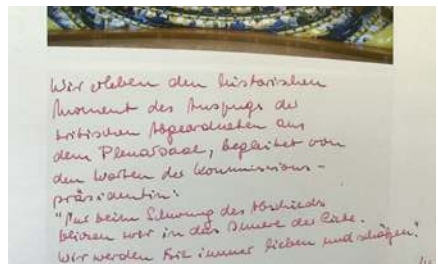 Wir erleben den historischen
Moment des Auszugs der
britischen Abgeordneten aus
dem Plenarsaal, begleitet von
den Worten der Kommissions-
präsidentin:
"Nur beim Schwung des Abschieds
blicken wir in das Innere der Liebe.
Wir werden Sie immer lieben und schätzen."